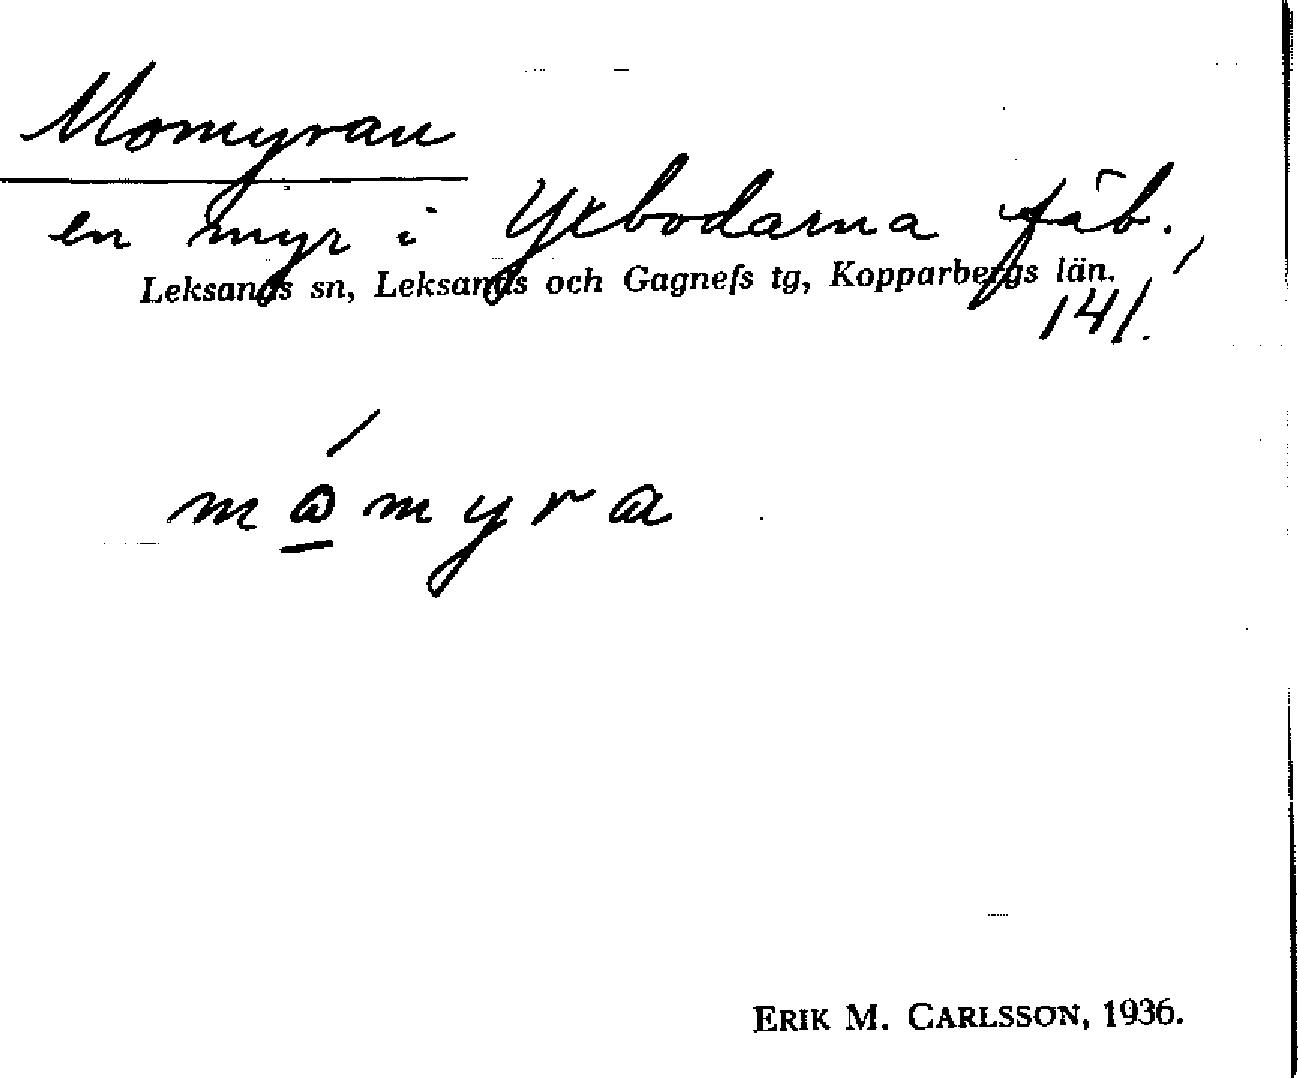 Momyran
en myr i Yxbodarna fäb.,
Leksands sn, Leksands och Gagnefs tg, Kopparbergs län.
141.
mωmyrα
ERIK M. CARLSSON, 1936.